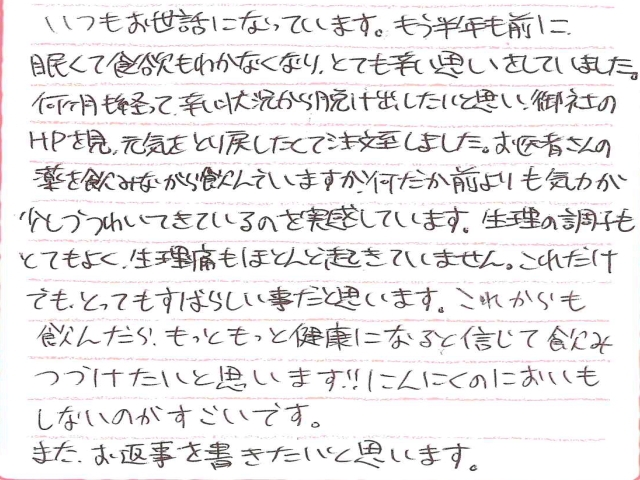 いつもお世話になっています。もう半年も前に
眠くて食欲もわかなくなり、とても辛い思いをしていました。
何ヶ月も経って、辛い状況から脱け出したいと思い、御社の
HPを見、元気をとり戻したくて注文至しました。お医者さんの
薬を飲みながら飲んでいますが、何だか前よりも気力が
少しづつわいてきているのを実感しています。生理の調子も
とてもよく、生理痛もほとんど起きていません。これだけ
でも、とってもすばらしい事だと思います。これからも
飲んだら、もっともっと健康になると信じて飲み
つづけたいと思います!!にんにくのにおいも
しないのがすごいです。
また、お返事を書きたいと思います。